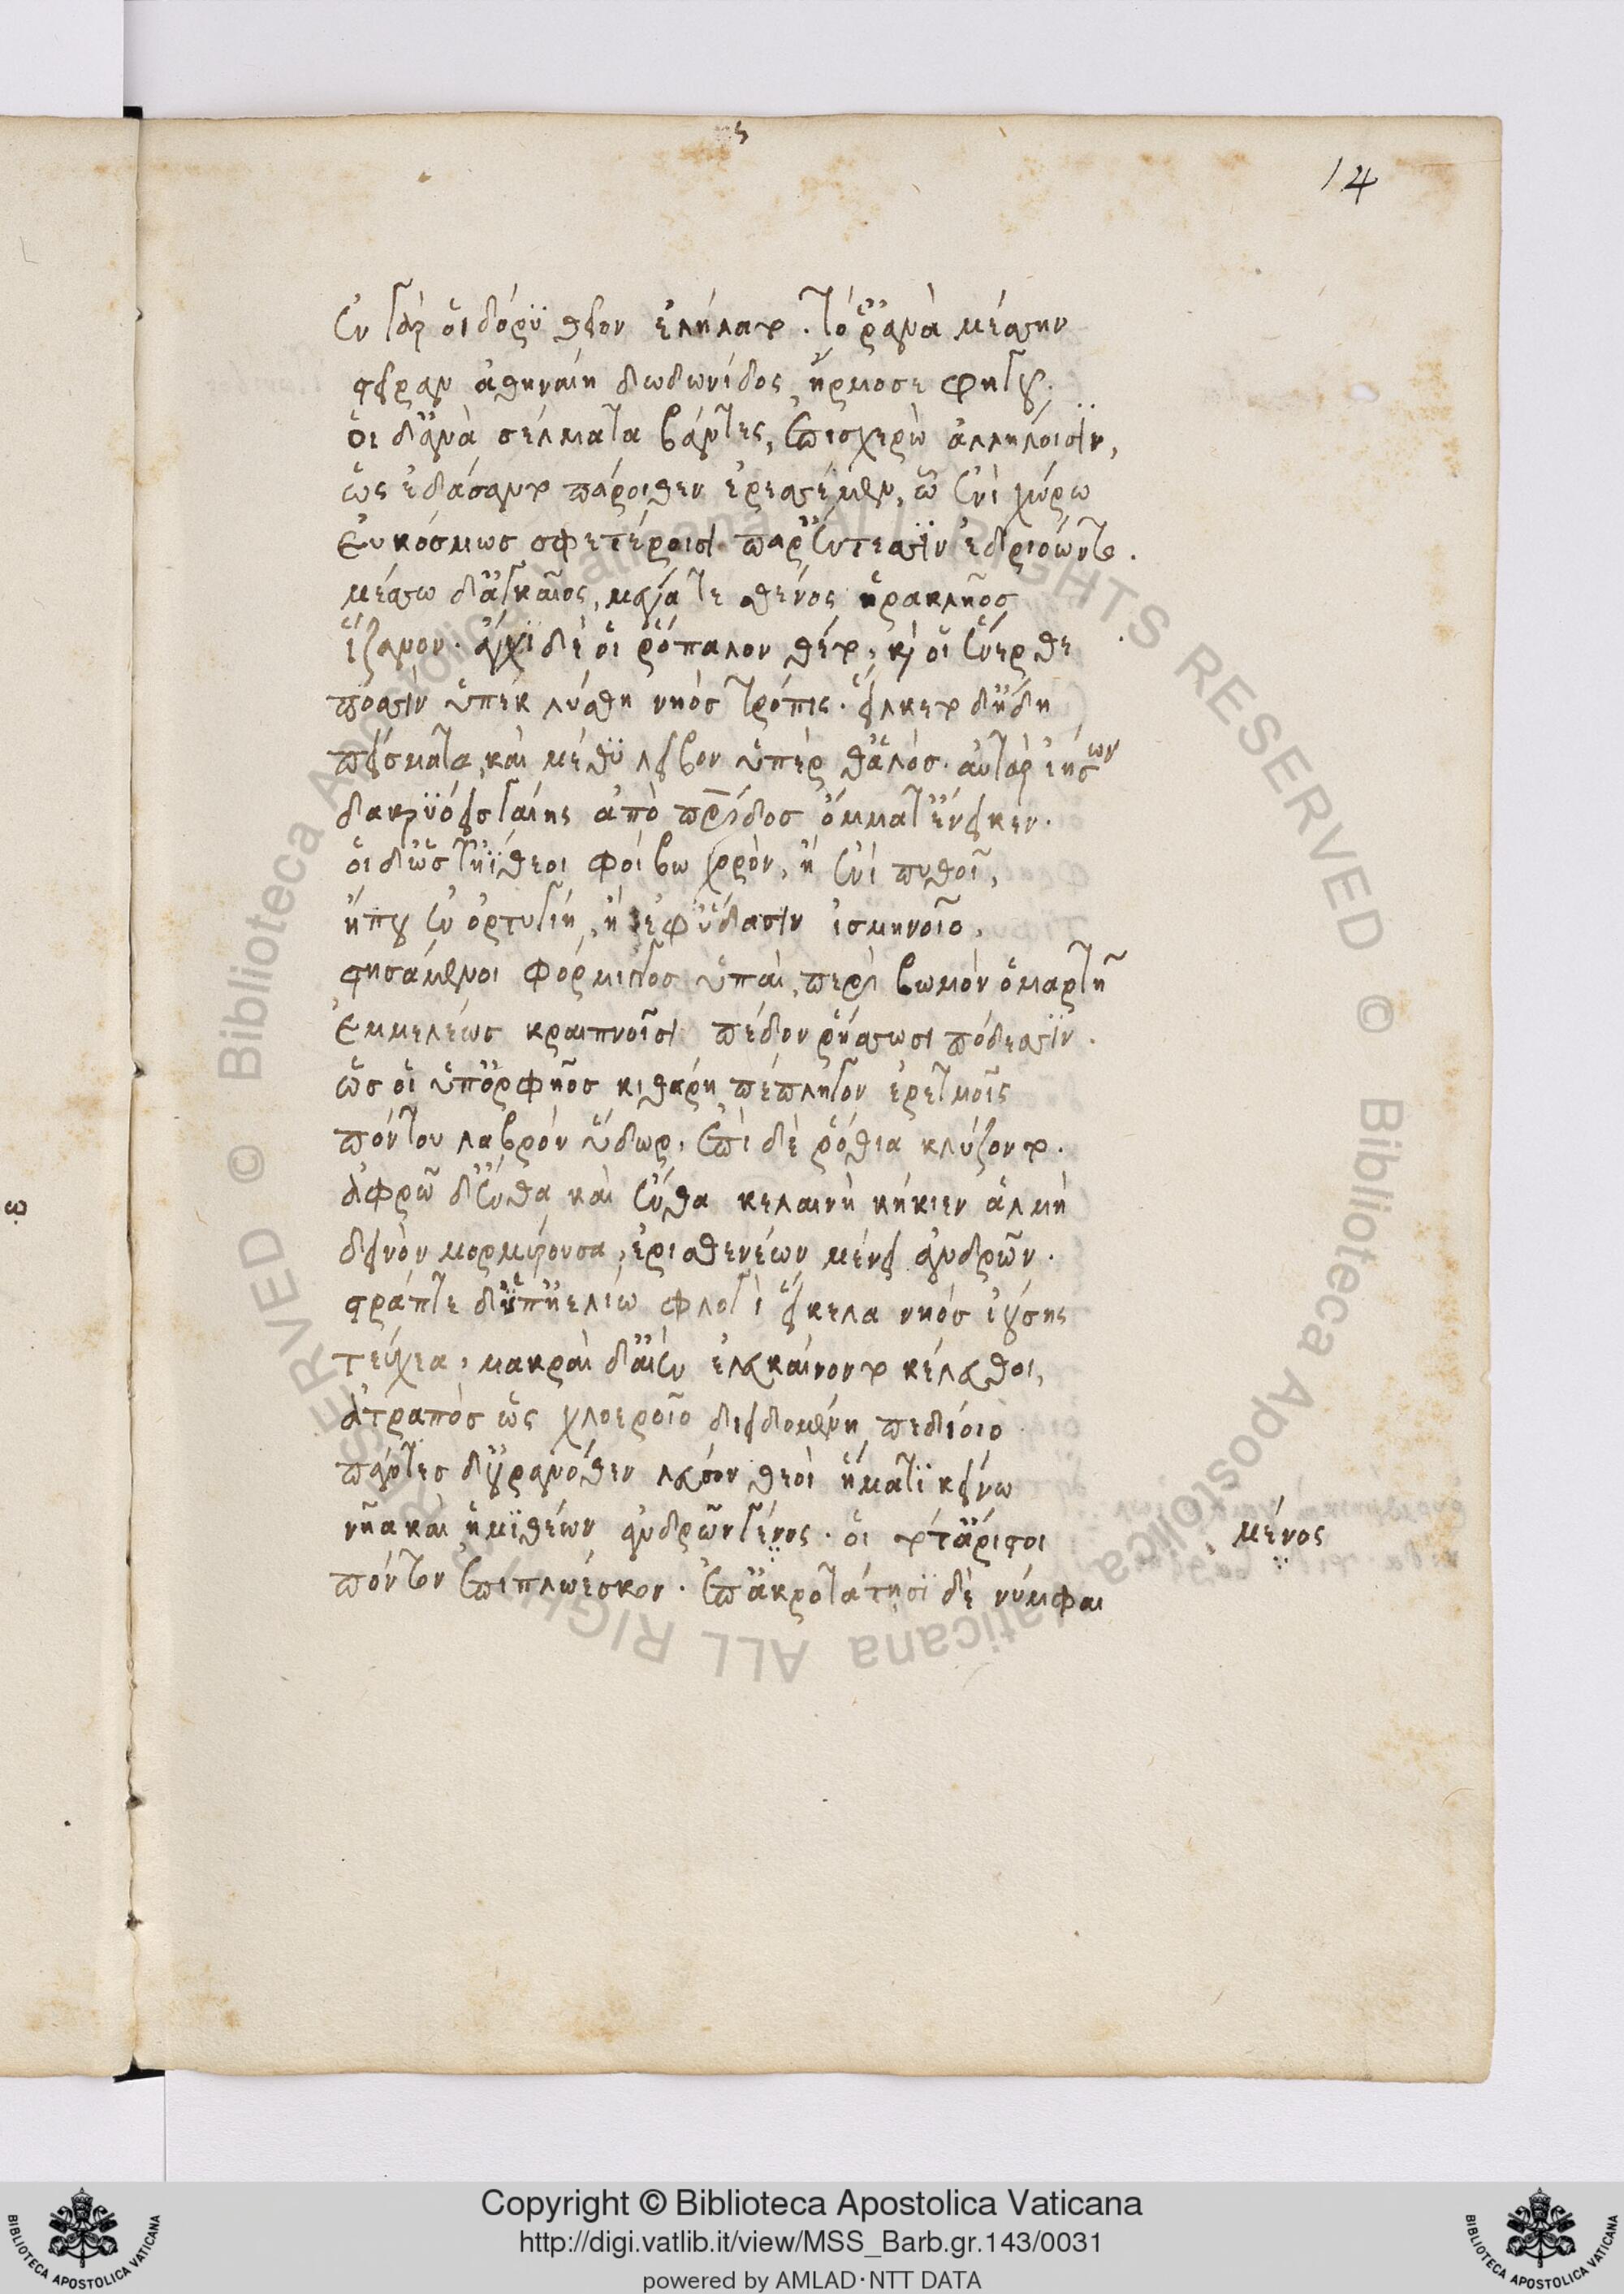 14
ἐν γάρ οἱ δόρυ θεῖον ἐλήλατο. τό ῥ' ἀνὰ μέσσην
στεῖραν ἀθηναίη δωδωνίδος ἥρμοσε φηγοῦ.
οἱ δ' ἀνὰ σέλματα βάντες, ἐπισχερὼ ἀλλήλοισιν,
ὡς ἐδάσαντο πάροιθεν ἐρεσσέμεν, ὧ ἐνὶ χώρω
εὐκόσμως σφετέροισι παρ' ἔντεσιν ἑδριόωντο.
μέσσω δ' ἀγκαῖος, μέγα τε σθένος ἡρακλῆος
ἵζανον. ἄγχι δέ οἱ ῥόπαλον θέτο, κ οἱ ἔνερθε
ποσσὶν ὑπεκλύσθη νηὸς τρόπις. εἵλκετο δ' ἤδη
πείσματα, καὶ μέθυ λεῖβον ὕπερ θ' ἁλός. αὐτὰρ ἰήσων
δακρυόεις γαίης ἀπὸ πρίδος ὄμματ' ἔνεικεν.
οἱ δ' ὥς τ' ἠΐθεοι φοίβω χορὸν, ἢ ἐνὶ πυθοῖ,
ἤπου ἐν ὀρτυγίη, ἢ ἐφ' ὕδασιν ἰσμηνοῖο,
στησάμενοι φόρμιγγος ὑπαὶ, περὶ βωμὸν ὁμαρτῆ
ἐμμελέως κραιπνοῖσι πέδον ῥήσσωσι πόδεσσιν.
ὣς οἱ ὑπ' ὀρφῆος κιθάρη πέπληγον ἐρετμοῖς
πόντου λαβρὸν ὕδωρ, ἐπὶ δὲ ῥόθια κλύζοντο.
ἀφρῶ δ' ἔνθα καὶ ἔνθα κελαινὴ κήκιεν ἅλμη
δεινὸν μορμύρουσα, ἐρισθενέων μένει ἀνδρῶν.
στράπτε δ' ὑπ' ἠελίω φλογὶ εἴκελα νηὸς ἰούσης
τεύχεα, μακραὶ δ' αἰὲν ἐλευκαίνοντο κέλευθοι,
ἀτραπὸς ὣς χλοεροῖο διειδομένη πεδίοιο
πάντες δ' οὐρανόθεν λεῦσσον θεοὶ ἤματι κείνω
νῆα καὶ ἡμιθέων ἀνδρῶν γένος. οἳ τότ' ἄριστοι
μένος
πόντον ἐπιπλώεσκον. ἐπ' ἀκροτάτησι δὲ νύμφαι
Copyright © Biblioteca Apostolica Vaticana
http://digi.vatlib.it/view/MSS_Barb.gr.143/0031
powered by AMLAD·NTT DATA